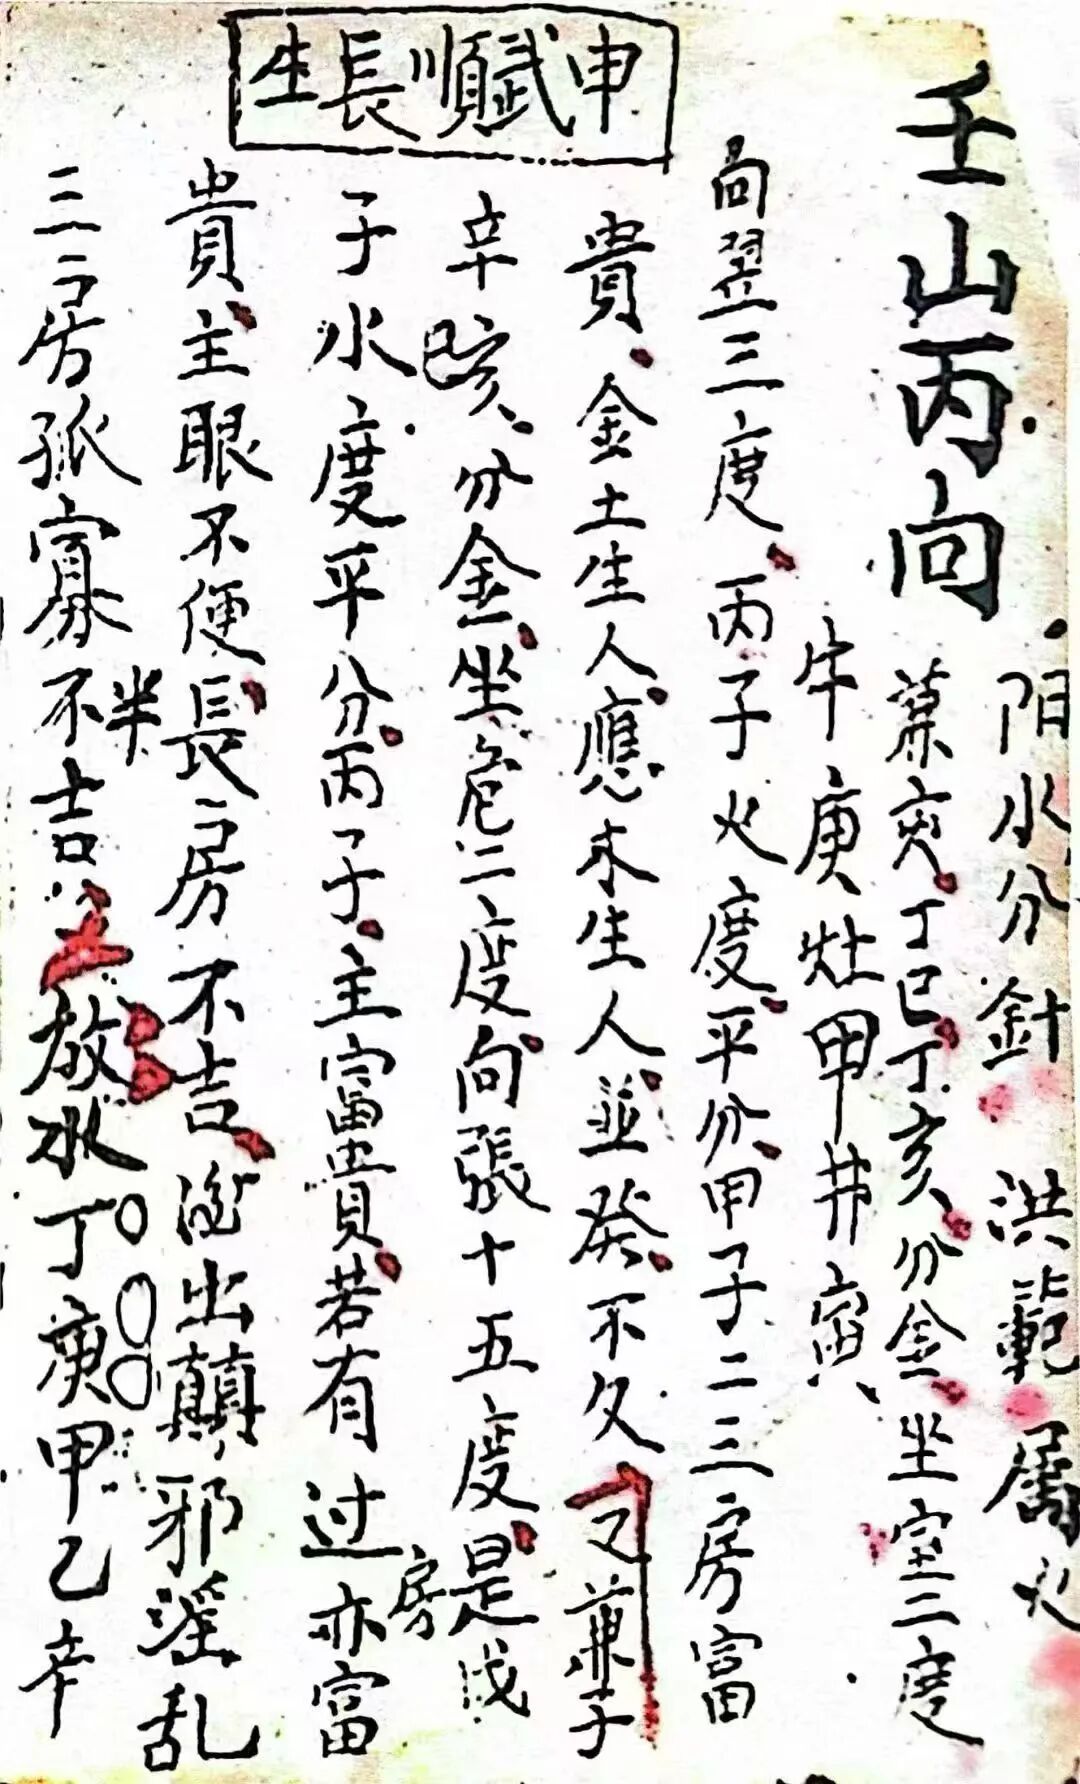 申貳順長生
壬山丙向
阳水分針 洪範属火
兼亥丁巳丁亥分金坐室二度
牛庚灶甲井寅
向翌三度丙子火度平分甲子二三房富
貴金土生人應木生人並發不久又兼子
辛巳亥分金坐危二度向張十五度是戊
房
子水度平分丙子主富貴若有过亦富
貴主眼不便長房不吉後出顛邪淫乱
半
三房孤寡不吉放水丁庚甲乙辛